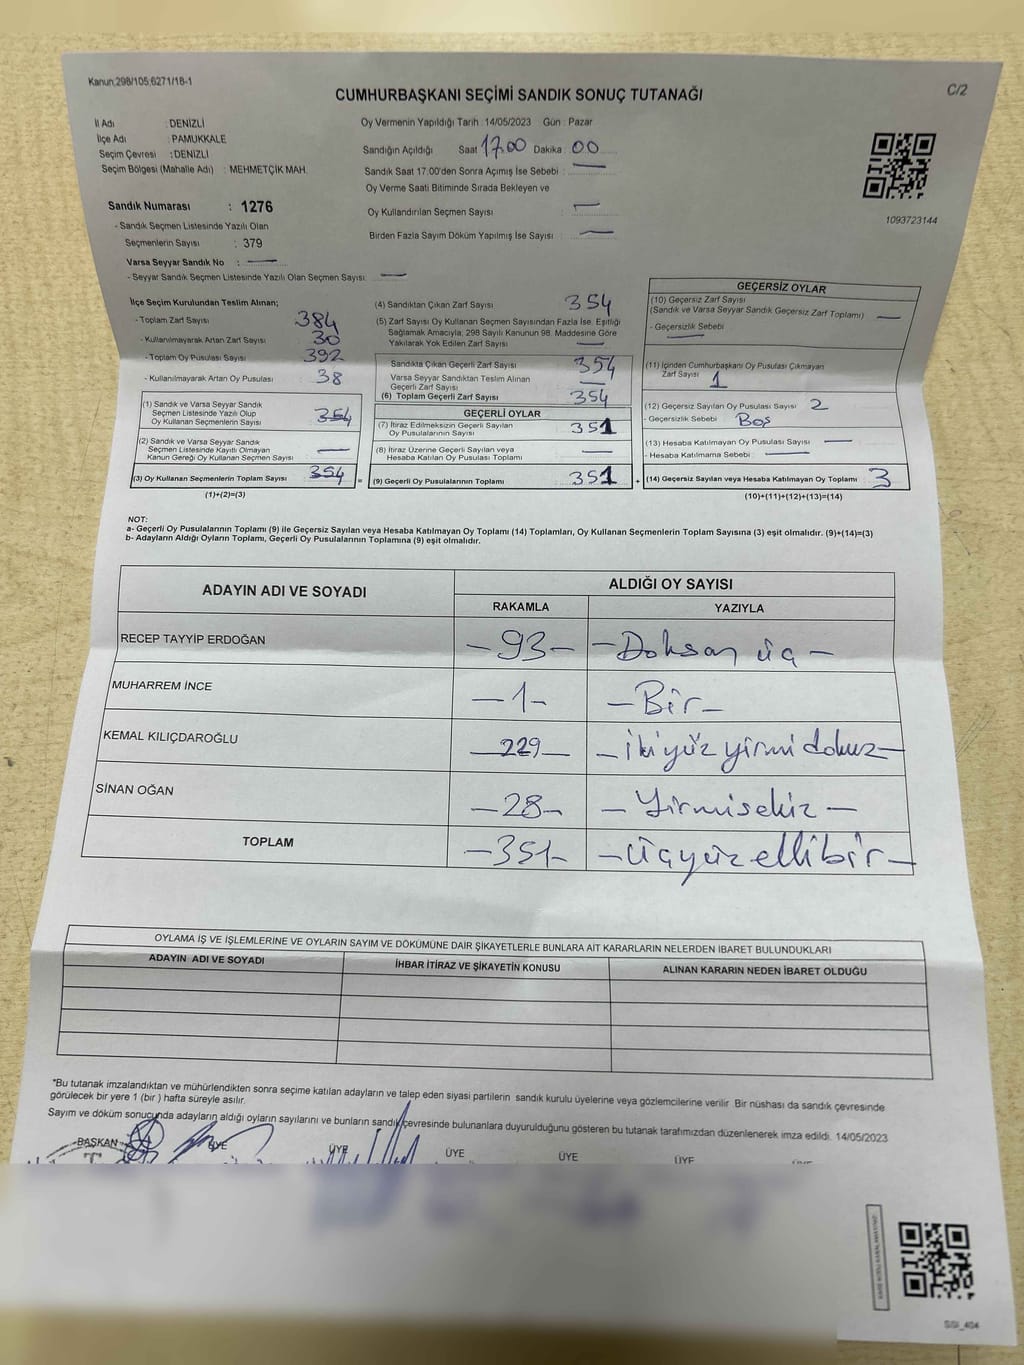 Kanun:298/105;6271/18-1
C/2
CUMHURBAŞKANI SEÇİMİ SANDIK SONUÇ TUTANAĞI
İl Adı : DENİZLİ
İlçe Adı : PAMUKKALE
Seçim Çevresi : DENİZLİ
Seçim Bölgesi (Mahalle Adı) : MEHMETÇİK MAH.
Sandık Numarası : 1276
- Sandık Seçmen Listesinde Yazılı Olan
Seçmenlerin Sayısı : 379
Varsa Seyyar Sandık No : —
- Seyyar Sandık Seçmen Listesinde Yazılı Olan Seçmen Sayısı: —
Oy Vermenin Yapıldığı Tarih : 14/05/2023 Gün : Pazar
Sandığın Açıldığı Saat 17.00 Dakika : 00
Sandık Saat 17.00'den Sonra Açımış İse Sebebi : —
Oy Verme Saati Bitiminde Sırada Bekleyen ve
Oy Kullandırılan Seçmen Sayısı : —
Birden Fazla Sayım Döküm Yapılmış İse Sayısı : —
1093723144
İlçe Seçim Kurulundan Teslim Alınan;
- Toplam Zarf Sayısı : 384
- Kullanılmayarak Artan Zarf Sayısı : 30
- Toplam Oy Pusulası Sayısı : 392
- Kullanılmayarak Artan Oy Pusulası : 38
(1) Sandık ve Varsa Seyyar Sandık
Seçmen Listesinde Yazılı Olup
Oy Kullanan Seçmenlerin Sayısı : 354
(2) Sandık ve Varsa Seyyar Sandık
Seçmen Listesinde Kayıtlı Olmayan
Kanun Gereği Oy Kullanan Seçmen Sayısı : —
(3) Oy Kullanan Seçmenlerin Toplam Sayısı : 354
(1)+(2)=(3)
(4) Sandıktan Çıkan Zarf Sayısı : 354
(5) Zarf Sayısı Oy Kullanan Seçmen Sayısından Fazla İse, Eşitliği
Sağlamak Amacıyla, 298 Sayılı Kanunun 98. Maddesine Göre
Yakılarak Yok Edilen Zarf Sayısı : —
Sandıkta Çıkan Geçerli Zarf Sayısı : 354
Varsa Seyyar Sandıktan Teslim Alınan
Geçerli Zarf Sayısı : —
(6) Toplam Geçerli Zarf Sayısı : 354
GEÇERLİ OYLAR
(7) İtiraz Edilmeksizin Geçerli Sayılan
Oy Pusulalarının Sayısı : 351
(8) İtiraz Üzerine Geçerli Sayılan veya
Hesaba Katılan Oy Pusulası Toplamı : —
= (9) Geçerli Oy Pusulalarının Toplamı : 351 +
GEÇERSİZ OYLAR
(10) Geçersiz Zarf Sayısı
(Sandık ve Varsa Seyyar Sandık Geçersiz Zarf Toplamı) : —
- Geçersizlik Sebebi : —
(11) İçinden Cumhurbaşkanı Oy Pusulası Çıkmayan
Zarf Sayısı : 1
(12) Geçersiz Sayılan Oy Pusulası Sayısı : 2
- Geçersizlik Sebebi : Boş
(13) Hesaba Katılmayan Oy Pusulası Sayısı : —
- Hesaba Katılmama Sebebi : —
(14) Geçersiz Sayılan veya Hesaba Katılmayan Oy Toplamı : 3
(10)+(11)+(12)+(13)=(14)
NOT:
a- Geçerli Oy Pusulalarının Toplamı (9) ile Geçersiz Sayılan veya Hesaba Katılmayan Oy Toplamı (14) Toplamları, Oy Kullanan Seçmenlerin Toplam Sayısına (3) eşit olmalıdır. (9)+(14)=(3)
b- Adayların Aldığı Oyların Toplamı, Geçerli Oy Pusulalarının Toplamına (9) eşit olmalıdır.
ADAYIN ADI VE SOYADI ALDIĞI OY SAYISI
RAKAMLA YAZIYLA
RECEP TAYYİP ERDOĞAN —93— —Doksan üç—
MUHARREM İNCE —1— —Bir—
KEMAL KILIÇDAROĞLU —229— —ikiyüz yirmi dokuz—
SİNAN OĞAN —28— —Yirmisekiz—
TOPLAM —351— —Üçyüz ellibir—
OYLAMA İŞ VE İŞLEMLERİNE VE OYLARIN SAYIM VE DÖKÜMÜNE DAİR ŞİKAYETLERLE BUNLARA AİT KARARLARIN NELERDEN İBARET BULUNDUKLARI
ADAYIN ADI VE SOYADI İHBAR İTİRAZ VE ŞİKAYETİN KONUSU ALINAN KARARIN NEDEN İBARET OLDUĞU
*Bu tutanak imzalandıktan ve mühürlendikten sonra seçime katılan adayların ve talep eden siyasi partilerin sandık kurulu üyelerine veya gözlemcilerine verilir. Bir nüshası da sandık çevresinde
görülecek bir yere 1 (bir ) hafta süreyle asılır.
Sayım ve döküm sonucunda adayların aldığı oyların sayılarını ve bunların sandık çevresinde bulunanlara duyurulduğunu gösteren bu tutanak tarafımızdan düzenlenerek imza edildi. 14/05/2023
BAŞKAN ÜYE ÜYE ÜYE ÜYE ÜYE ÜYE
SGİ_404